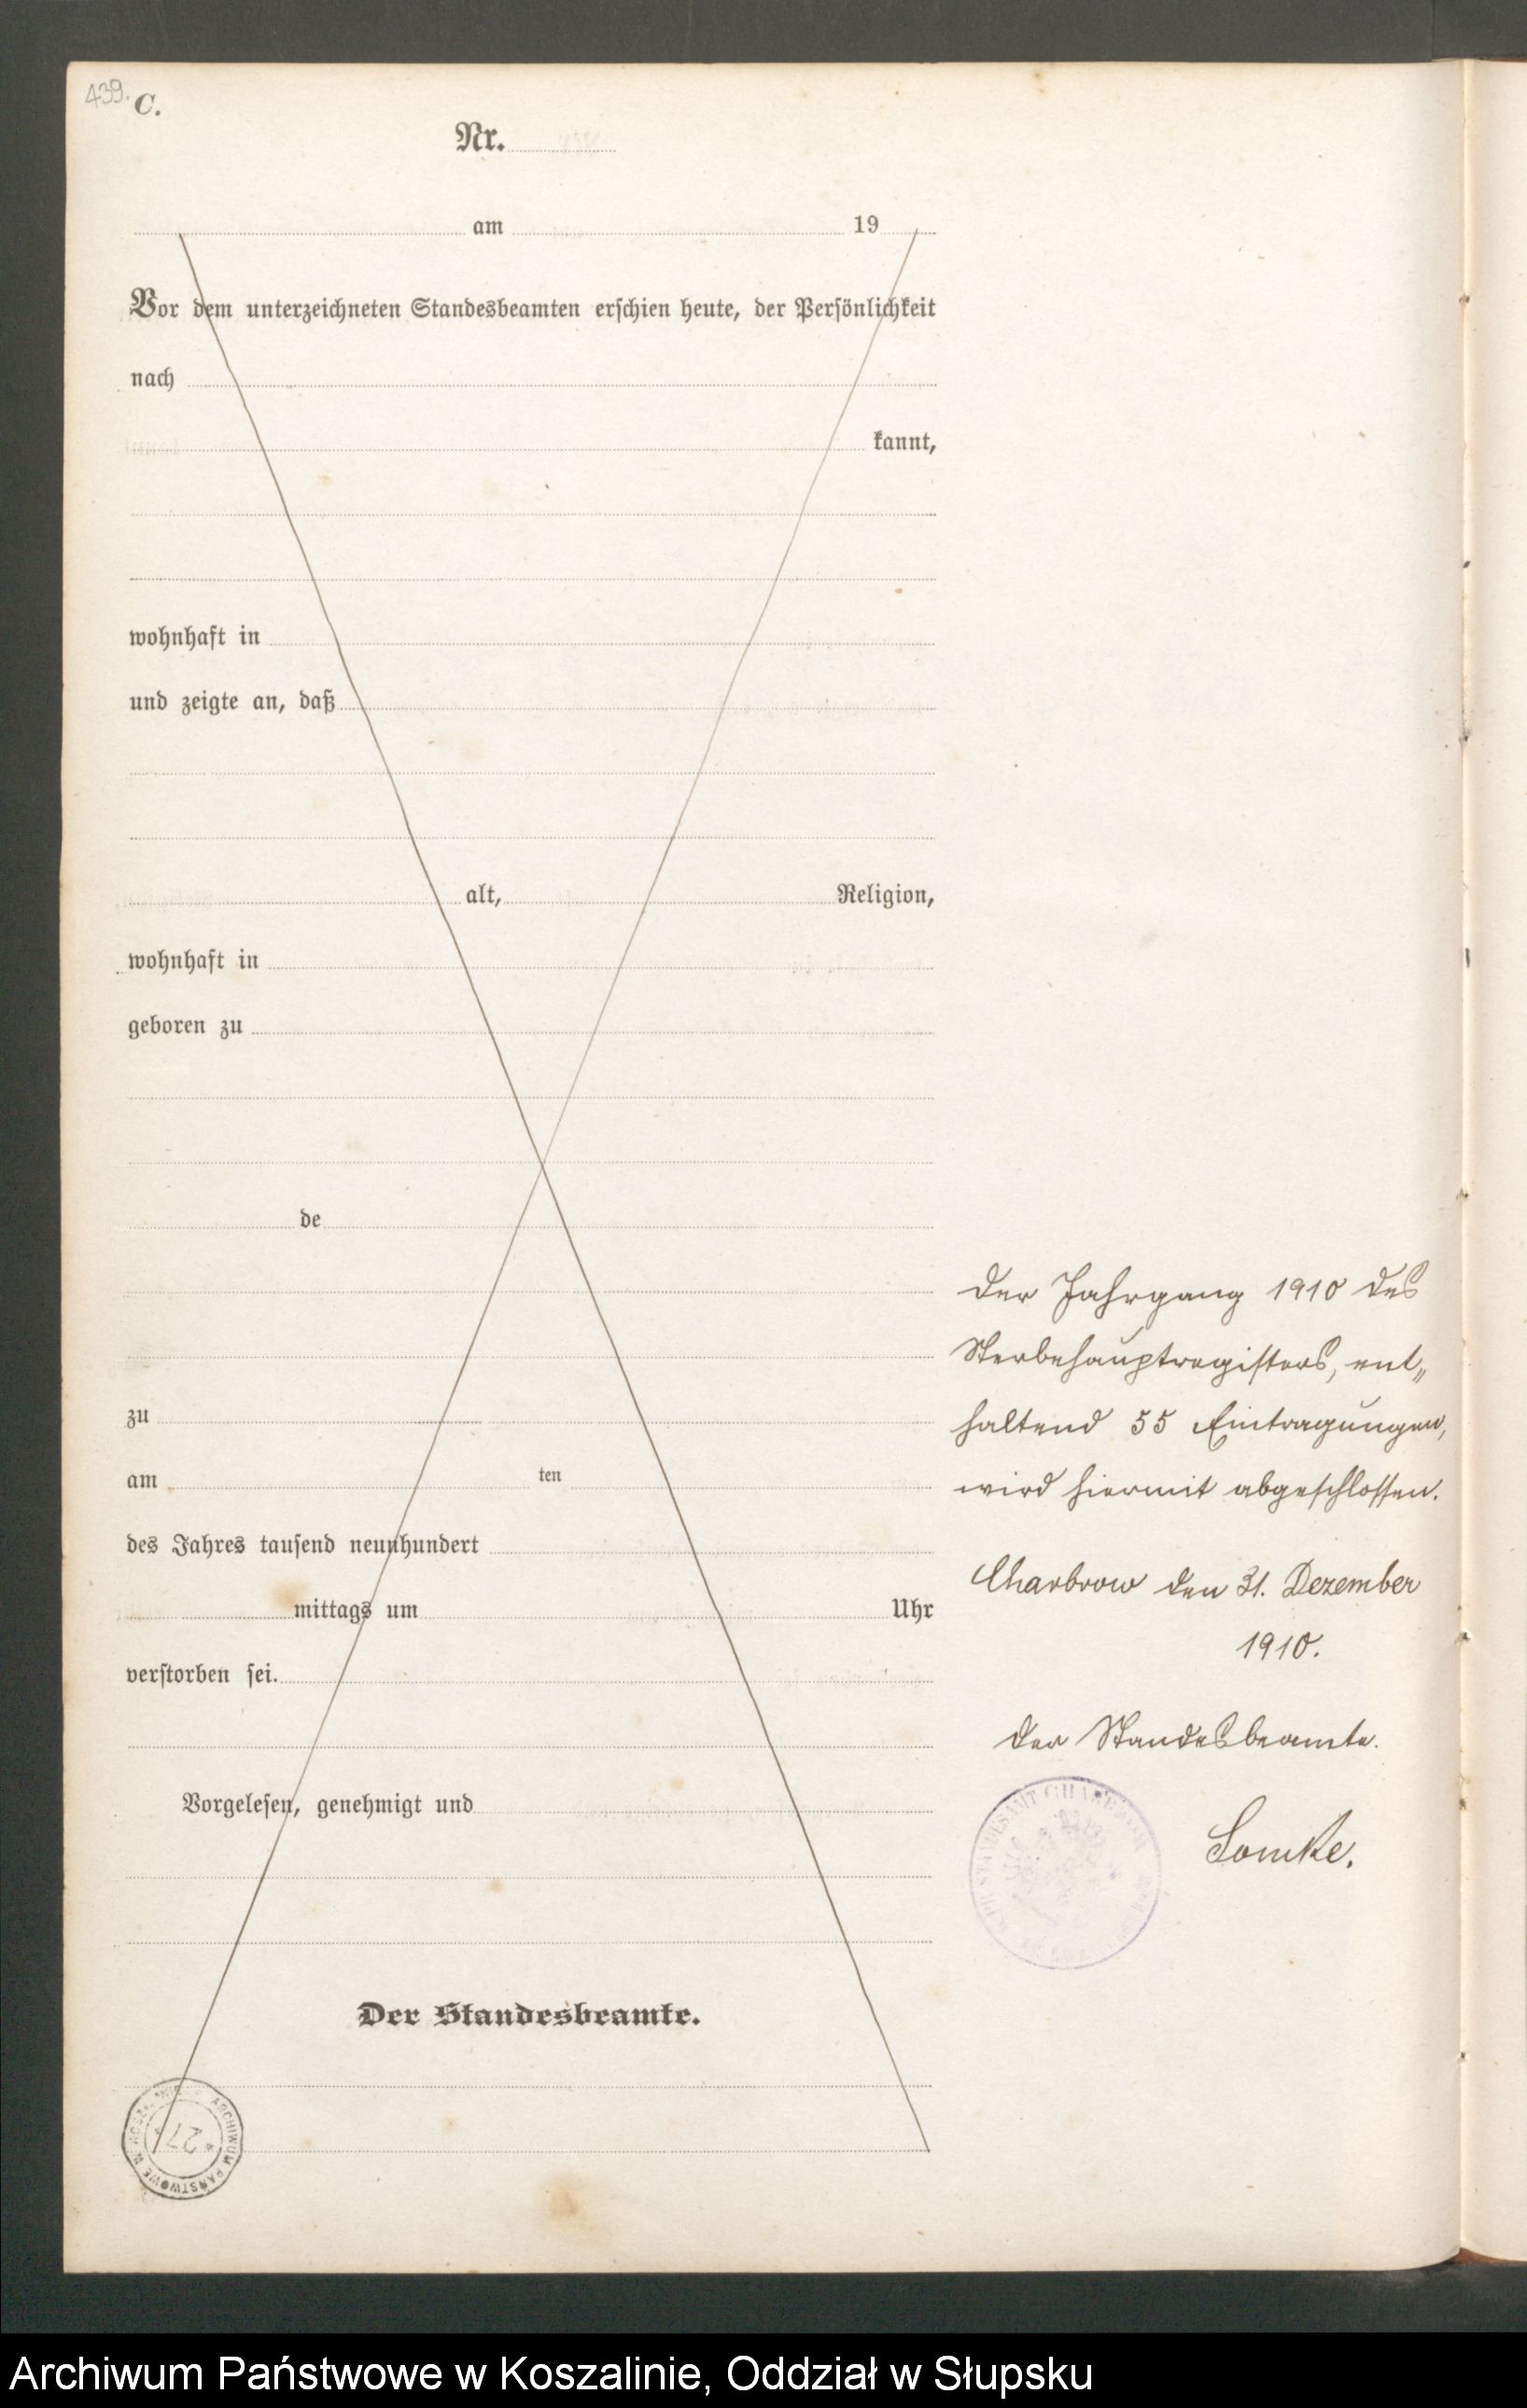 439.
C.
Nr.
am 19
Vor dem unterzeichneten Standesbeamten erschien heute, der Persönlichkeit
nach
kannt,
wohnhaft in
und zeigte an, daß
alt, Religion,
wohnhaft in
geboren zu
de
zu
am ten
des Jahres tausend neunhundert
mittags um Uhr
verstorben sei.
Vorgelesen, genehmigt und
Der Standesbeamte.
Der Jahrgang 1910 des
Sterbehauptregisters, ent„
haltend 55 Eintragungen,
wird hiermit abgeschlossen.
Charbrow den 31. Dezember
1910.
Der Standesbeamte.
STANDESAMT
ARCHIWUM PAŃSTWOWE W
27
Archiwum Państwowe w Koszalinie, Oddział w Słupsku